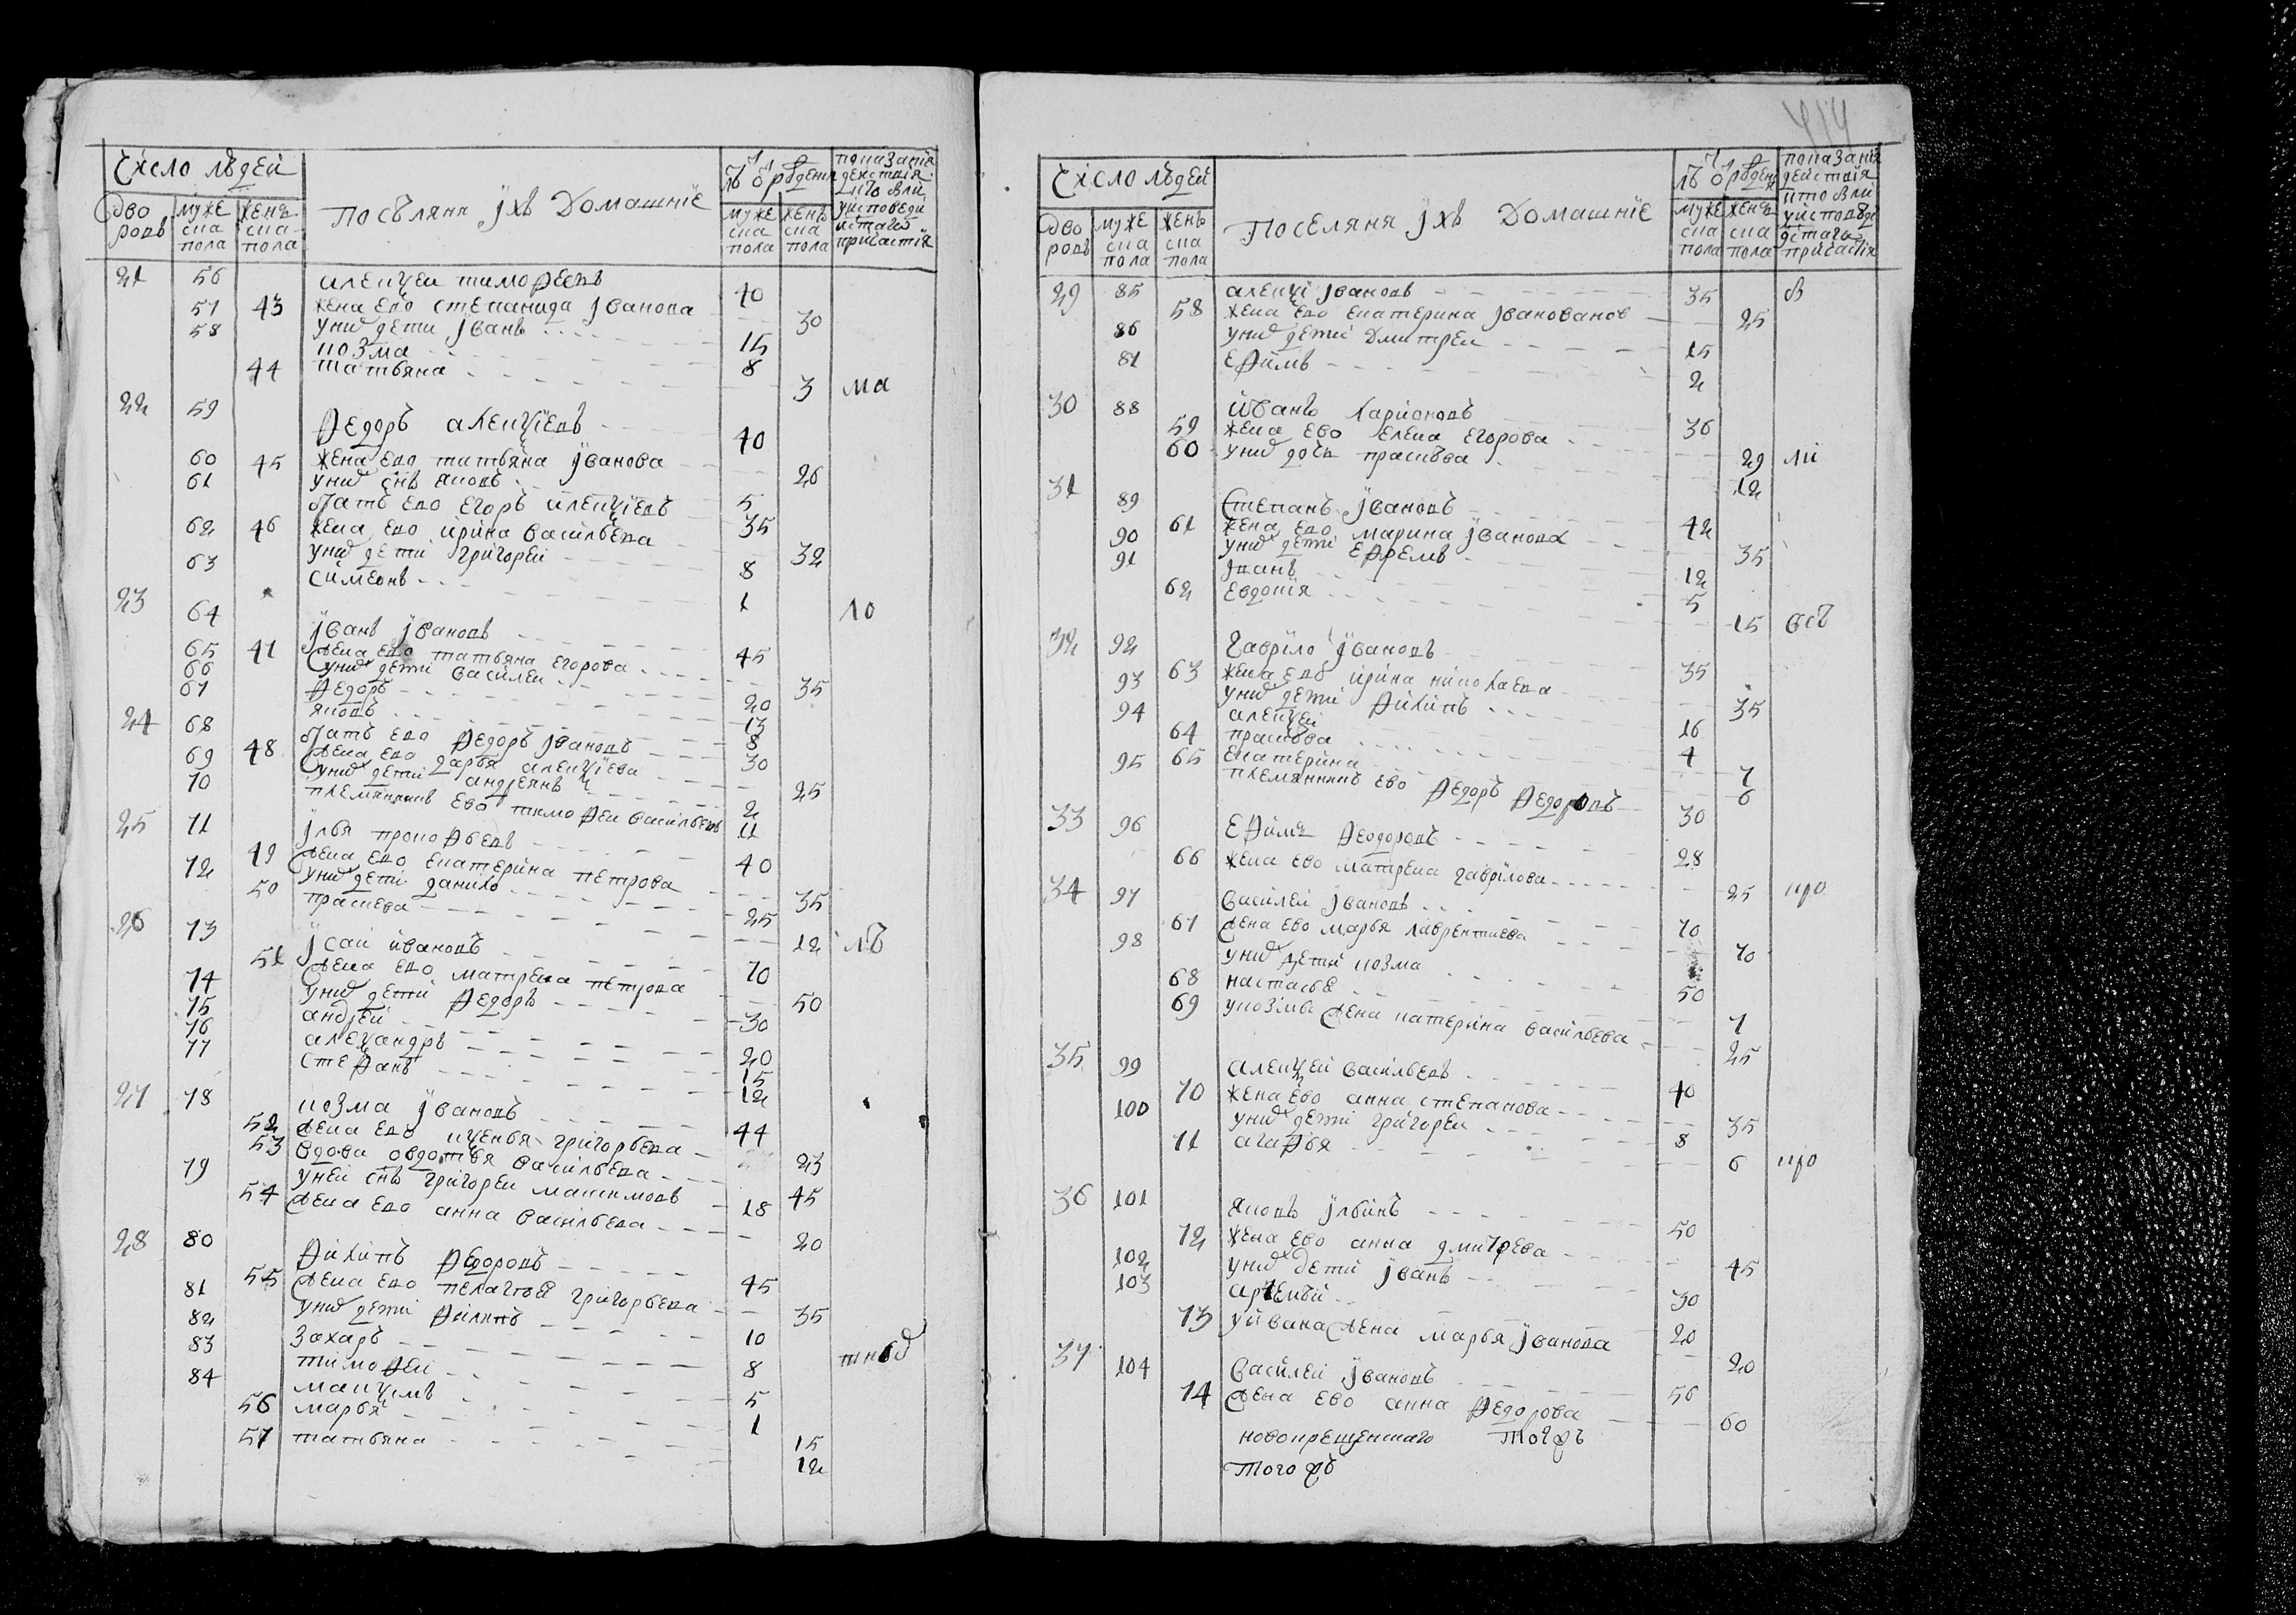 414
Число людей
посѣляня ихъ Домашнiе
лѣ ѿ рѡдения
показания действия
дворовъ
мужеска пола
женска пола
мужеска пола
женска пола
21 56 алекцеи тимофеевъ 40
57 43 жена ево степанида Iванова 30
58 унихъ дети Iванъ 15
козма 8
44 татьяна 3 ма
22 59 федоръ алекцiевъ 40
60 45 жена ево татьяна Iванова 26
61 унихъ снъ яковъ 5
братъ ево егоръ алекцiевъ 35
62 46 жена ево ирина васильева 32
63 унихъ дети григореи 8
симеонъ 1 ло
23 64 Iванъ Iвановъ 45
65 47 жена ево татьяна егорова 35
66 унихъ дети василеи 20
67 федоръ 13
яковъ 8
24 68 братъ ево федоръ Iвановъ 30
69 48 жена ево дарья алекцiева 25
70 унихъ дети андреянъ 2
племянникъ ево тимофеи васильевъ 11
25 71 Iлья прокофьевъ 40
49 жена ево екатерина петрова 35
72 унихъ дети данило 25
50 прасковя 12 лѣ
26 73 Iсаи ивановъ 70
51 жена ево матрена петрова 50
74 унихъ дети федоръ 30
75 андреи 20
76 александръ 15
77 стефанъ 12
27 78 козма Iвановъ 44
52 жена ево ксенья григорьева 23
53 вдова овдотья васильева 45
79 унеи снъ григореи максимовъ 18
54 жена ево анна васильева 20
28 80 филипъ федоровъ 45
55 жена ево пелагея григорьева 35
81 унихъ дети филипъ 10
82 захаръ 8
83 тимофеи 5
84 макцимъ 1
56 марья 15
57 татьяна 12
Число людей
поселяня ихъ Домашнiе
лѣ ѿ рѡдения
показания действия
дворовъ
мужеска пола
женска пола
мужеска пола
женска пола
29 85 алекцi Iвановъ 35 в
58 жена ево екатерина Iванованов 25
86 унихъ дети дмитреи 15
87 ефимъ 2
30 88 иванъ ларионовъ 36
59 жена ево елена егорова 29 ли
60 унихъ дочь прасковя 12
31 89 степанъ Iвановъ 42
61 жена ево марина Iванова 35
90 унихъ дети ефремъ 12
91 Iванъ 5
62 евдокiя 15 всѣ
32 92 гаврiло Iвановъ 35
63 жена ево ирина николаева 35
93 унихъ дети филипъ 16
94 алекцеи 4
64 прасковя 7
65 екатерина 6
95 племянникъ ево федоръ федоровъ 30
33 96 ефимъ феодоровъ 28
66 жена ево матрена гаврилова 25 про
34 97 василеи Iвановъ 70
67 жена ево марья лаврентиева 70
98 унихъ дети козма 50
68 настасье 7
69 укозмы жена катерина васильева 25
35 99 алекцеи васильевъ 40
70 жена ево анна степанова 35
100 унихъ дети григореи 8
71 агафья 6 про
36 101 яковъ Iльинъ 50
72 жена ево анна дмитрева 45
102 унихъ дети Iванъ 30
103 артемеи 20
73 уивана жена марья Iванова 20
37 104 василеи Iвановъ 56
74 жена ево анна федорова 60
новокрещеннаго